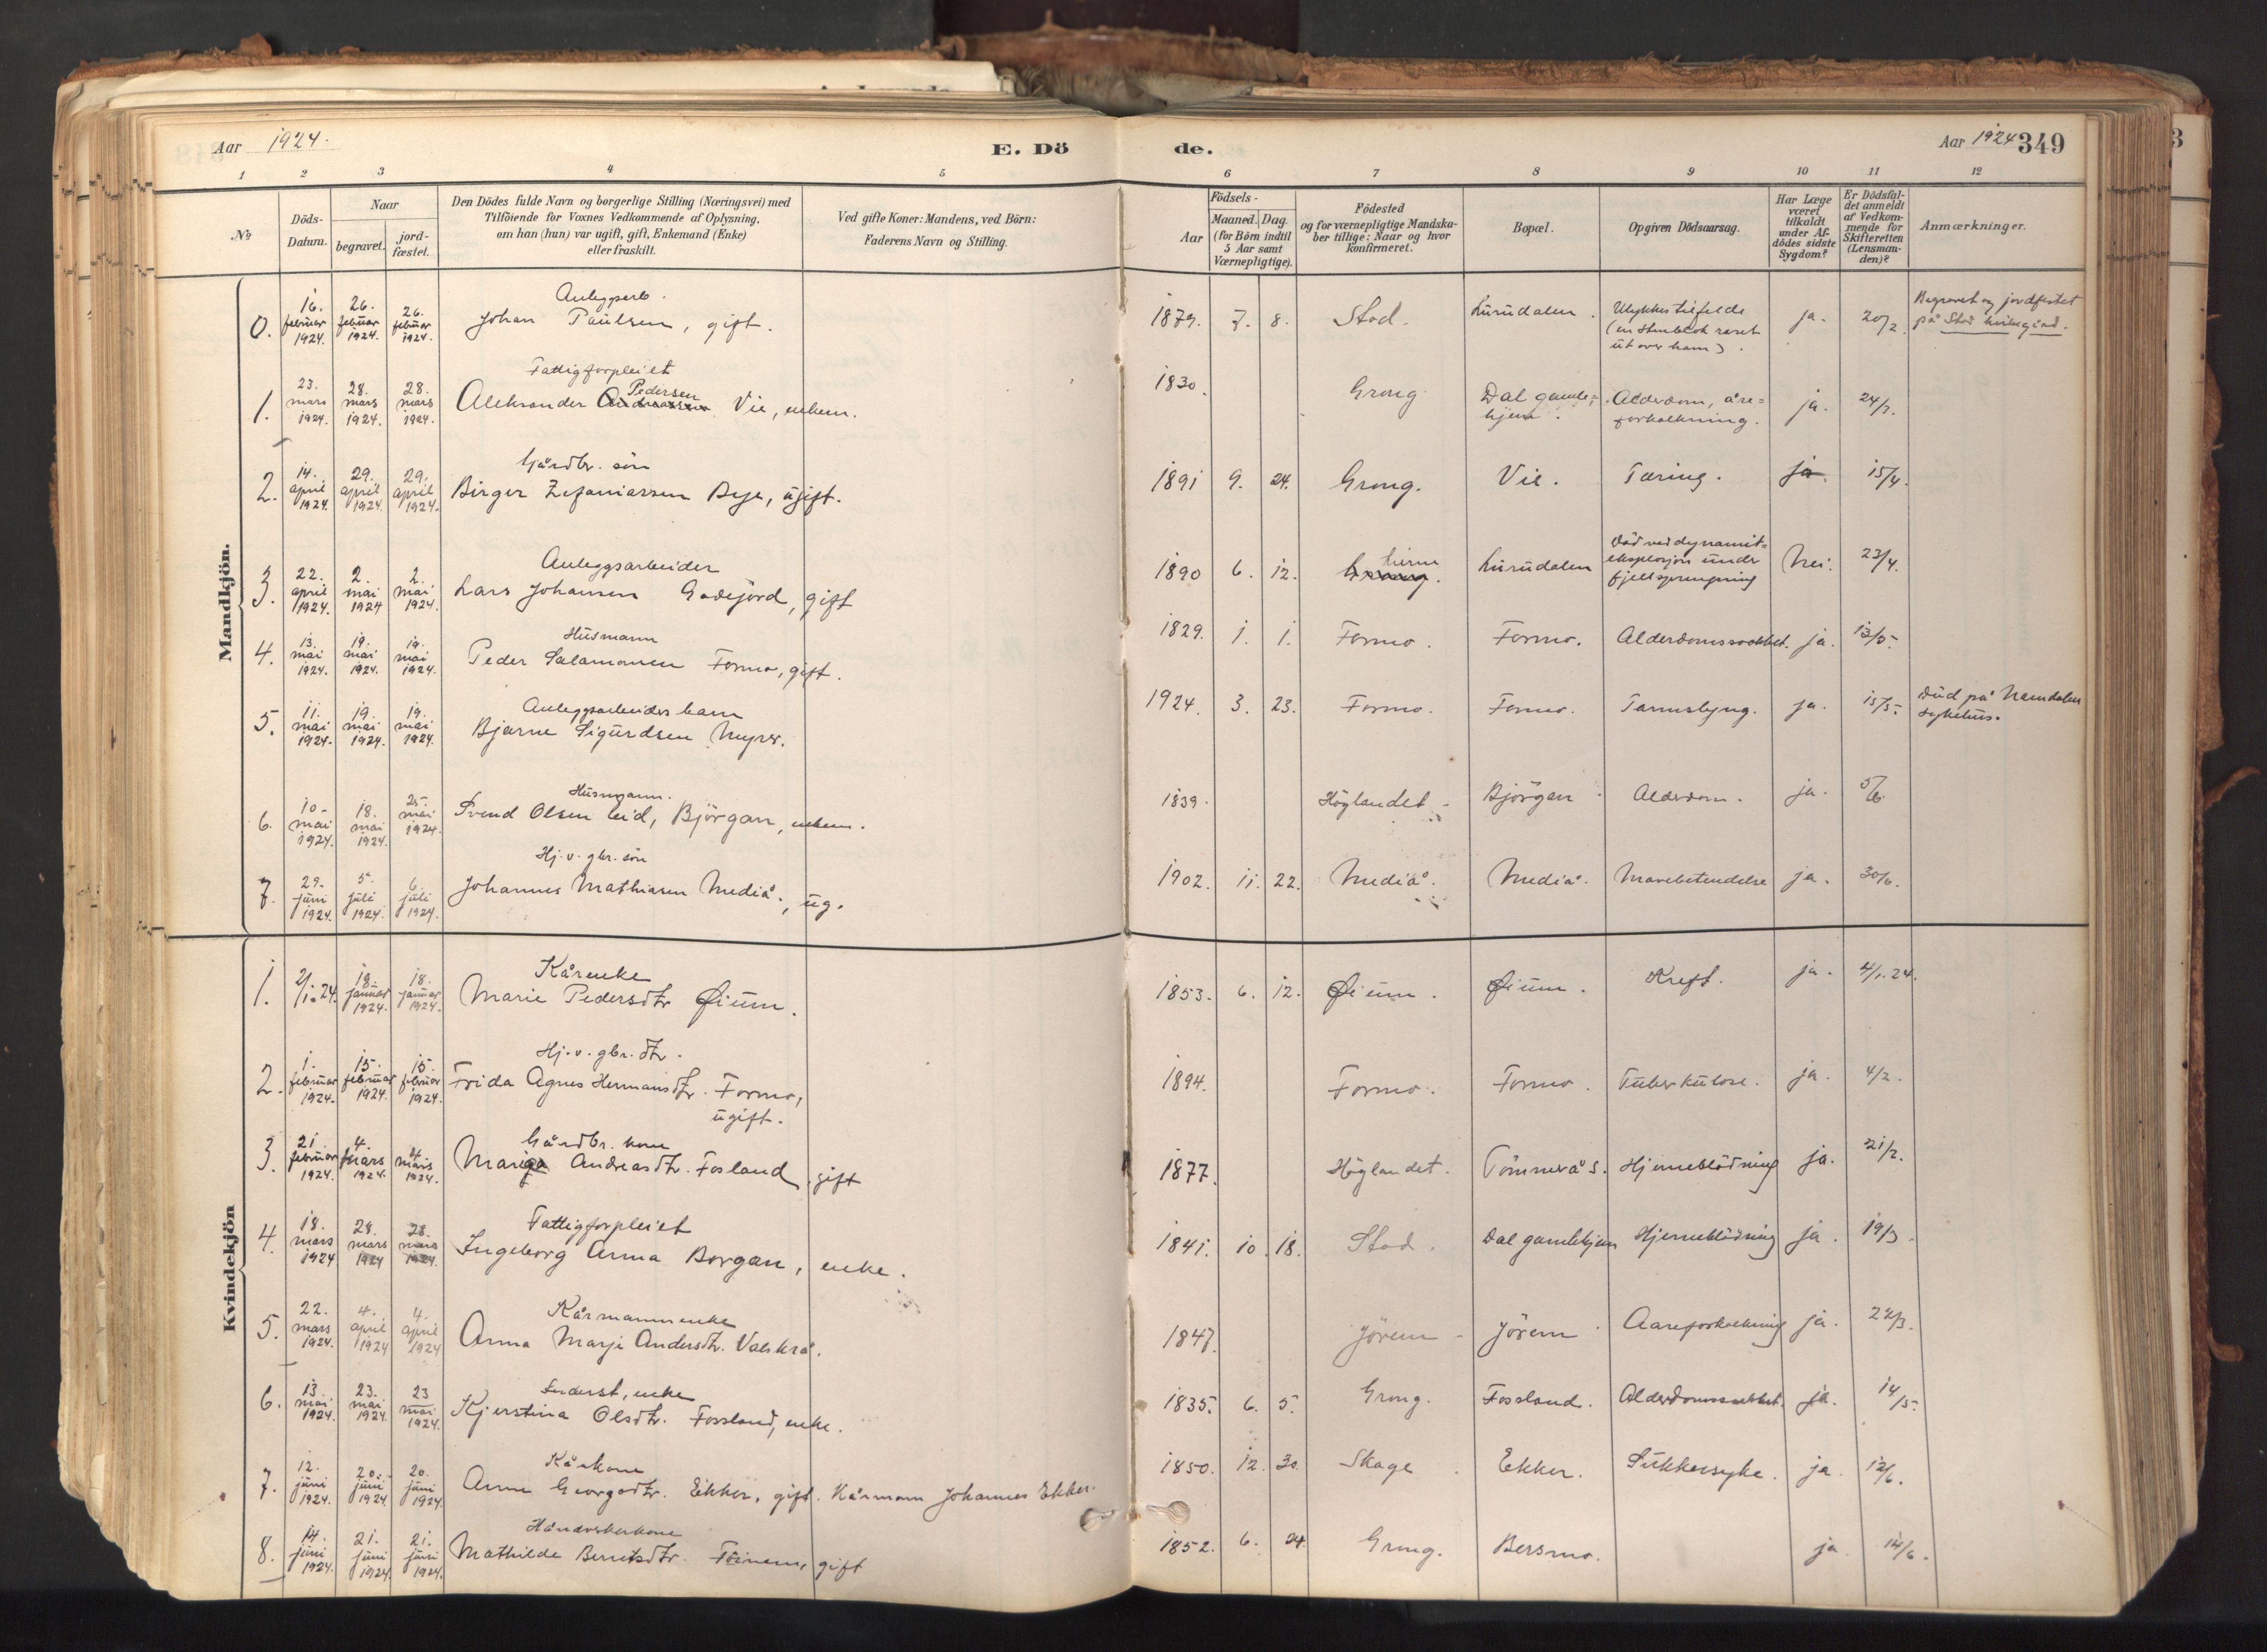 Aar 1924. E. Dö de. Aar 1924 349
1 2 3 4 5 6 7 8 9 10 11 12
№ Döds-Datum. Naar begravet. jord-fæstet.
Den Dödes fulde Navn og borgerlige Stilling (Næringsvei) med
Tilföiende for Voxnes Vedkommende af Oplysning,
om han (hun) var ugift, gift, Enkemand (Enke)
eller fraskilt.
Ved gifte Koner: Mandens, ved Börn:
Faderens Navn og Stilling.
Aar
Födsels-
Maaned. Dag.
(for Börn indtil
5 Aar samt
Værnepligtige).
Födested
og for værnepligtige Mandska-
ber tillige: Naar og hvor
konfirmeret.
Bopæl.
Opgiven Dödsaarsag.
Har Læge
været
tilkaldt
under Af-
dödes sidste
Sygdom?
Er Dödsfal-
det anmeldt
af Vedkom-
mende for
Skifteretten
(Lensman-
den)?
Anmærkninger.
Mandkjön.
0. 16. februar 1924. 26. februar 1924. 26. februar 1924. Anleggsarb. Johan Paulsen, gift. 1879. 7. 8. Stod. Lurudalen. Ulykkestilfelde (en stenblok raset ut over ham). ja. 20/2. Begravet og jordfestet på Stod kirkegård.
1. 23. mars 1924. 28. mars 1924. 28. mars 1924. Fattigforpleiet Aleksander Andreassen Pedersen Vie, enkem. 1830. Grong Dal gamle=hjem. Alderdom, åre=forkalkning. ja. 24/3.
2. 14. april 1924. 29. april 1924. 29. april 1924. Gårdbr. sön Birger Zefaniassen Bye, ugift. 1891 9. 24. Grong. Vie. Tæring. ja. 15/4.
3. 22. april 1924. 2. mai 1924 2. mai 1924. Anleggsarbeider Lars Johansen Godejord, gift 1890 6. 12. Grong. Lierne Lurudalen Död ved dynamit=eksplosjon under fjellsprengning Nei. 23/4.
4. 13. mai 1924. 19. mai 1924. 19. mai 1924. Husmann Peder Salamonsen Formo, gift. 1829. 1. 1. Formo. Formo. Alderdomssvakhet. ja. 13/5.
5. 11. mai 1924. 19. mai 1924. 19. mai 1924. Anleggsarbeiders barn Bjarne Sigurdsen 1924. 3. 23. Formo. Formo. Tarmslyng. ja. 15/5. Död på Namdalen sykehus.
6. 10. mai 1924. 18. mai 1924. 25. mai 1924. Husmann. Svend Olsen Bjørgan, enkem. 1839. Höglandet. Björgan. Alderdom. ja. 5/6.
7. 29. juni 1924. 5. juli 1924. 6. juli 1924. Hj. v. gbr. sön Johannes Mathiasen Mediå, ug. 1902. 11. 22. Mediå. Mediå. Mavebetendelse ja. 30/6.
Kvindekjön
1. 2/1. 24. 18. januar 1924. 18. januar 1924. Kårenke Marie Pedersdtr Øium. 1853. 6. 12. Øium. Øium. Kreft. ja. 4/1. 24.
2. 1. februar 1924. 15. februar 1924. 15. februar 1924. Hj. v. gbr. dtr. Frida Agnes Hermansdtr. Formo, ugift. 1894. Formo. Formo. Tuberkulose. ja. 4/2.
3. 21. februar 1924. 4. mars 1924. 4. mars 1924. Gårdbr. kone Andreasdtr. Fosland, gift 1877. Höglandet. Tömmerås. Hjerneblödning ja. 21/2.
4. 18. mars 1924 28. mars 1924 28. mars 1924. Fattigforpleiet Ingeborg Anna Borgan, enke. 1841. 10. 18. Stod. Dal gamlehjem Hjerneblödning ja. 19/3.
5. 22. mars 1924. 4. april 1924 4. april 1924 Kårmannsenke Anna Marje Andersdtr. Valskrå. 1847. Jörem. Jörem. Aareforkalkning ja. 24/3.
6. 13. mai 1924. 23. mai 1924. 23 mai 1924. Inderst, enke Kjerstina Olsdtr. Fossland, enke. 1835. 6. 5. Grong. Fossland. Alderdomssvakhet. ja. 14/5.
7. 12. juni 1924. 20. juni 1924. 20. juni 1924. Kårkone Anne Georgsdtr. Ekker, gift. Kårmann Johannes Ekker. 1850. 12. 30. Skage Ekker. Sukkersyke. ja. 12/6.
8. 14. juni 1924. 21. juni 1924. 21. juni 1924. Håndverkerkone Mathilde Berntsdtr. gift 1852. 6. 24. Grong. Bersmo. ja. 14/6.